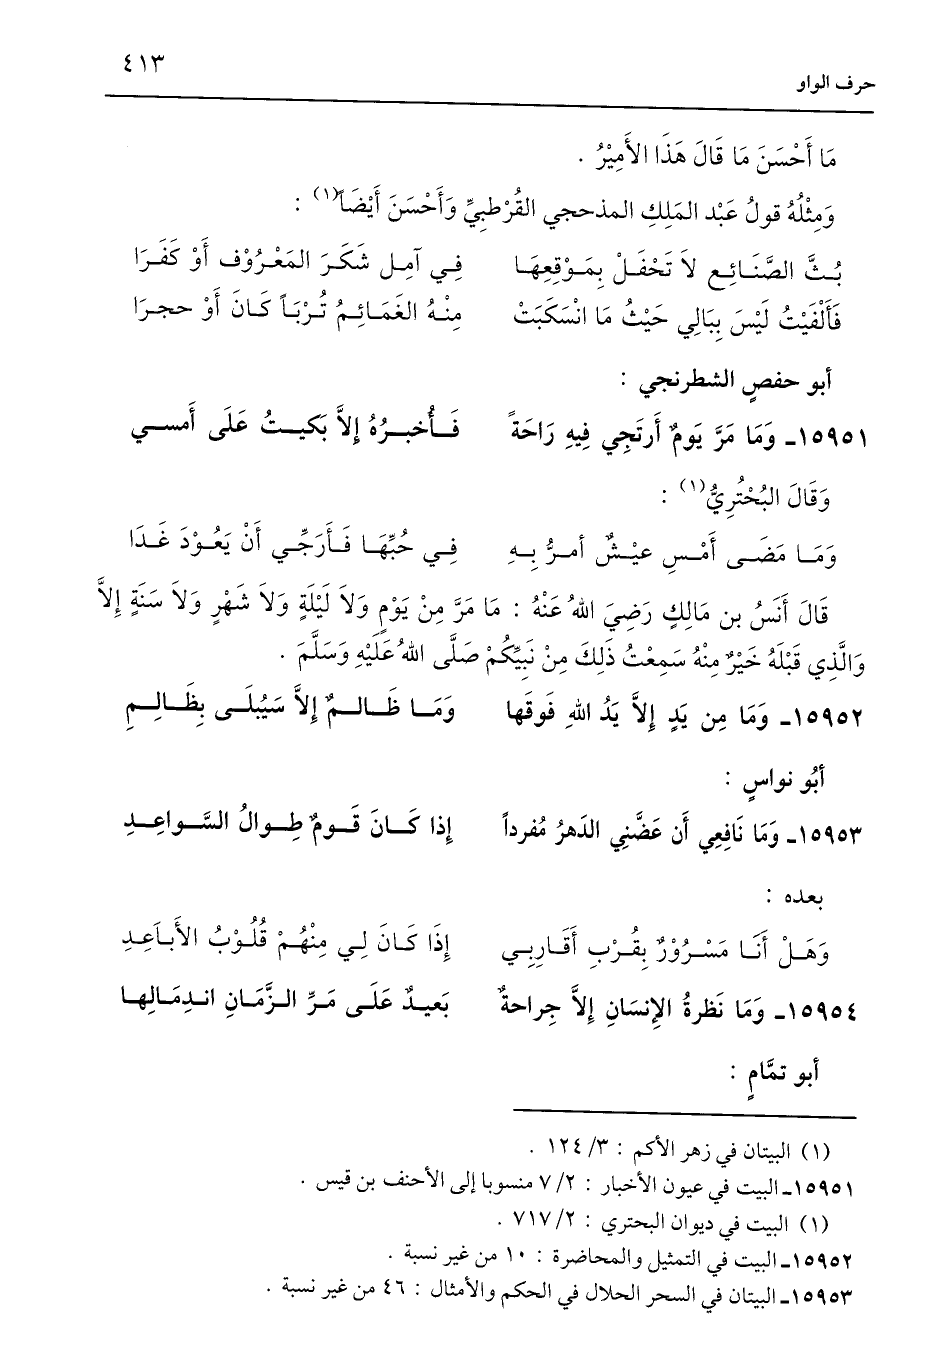 ٤١٣
حرف الواو
مَا أَحْسَنَ مَا قَالَ هَذَا الأَمِيْرُ .
وَمِثْلُهُ قولُ عَبْد المَلِكِ المذحجي القُرْطبِيِّ وَأَحْسَنَ أَيْضَاً(١) :
بُثَّ الصَّنَائِع لاَ تَحْفَلْ بِمَوْقِعِهَا فِي آمِل شَكَرَ المَعْرُوْف أَوْ كَفَرَا
فَأَلْفَيْتُ لَيْسَ بِبَالِي حَيْثُ مَا انْسَكَبَتْ مِنْهُ الغَمَائِمُ تُرْبَاً كَانَ أَوْ حجرَا
أبو حفصٍ الشطرنجي :
١٥٩٥١ـ وَمَا مَرَّ يَومٌ أَرتَجِي فِيهِ رَاحَةً فَأُخبرُهُ إلاَّ بَكيتُ عَلَى أَمسي
وَقَالَ البُحْتُرِيُّ(١) :
وَمَا مَضَى أَمْسِ عيْشٌ أمرُّ بِهِ فِي حُبِّهَا فَأَرَجِّي أَنْ يَعُوْدَ غَدَا
قَالَ أَنَسُ بن مَالِكٍ رَضِيَ اللهُ عَنْهُ : مَا مَرَّ مِنْ يَوْمٍ وَلاَ لَيْلَةٍ وَلاَ شَهْرٍ وَلاَ سَنَةٍ إِلاَّ
وَالَّذِي قَبْلَهُ خَيْرٌ مِنْهُ سَمِعْتُ ذَلِكَ مِنْ نَبِيِّكُمْ صَلَّى اللهُ عَلَيْهِ وَسَلَّمَ .
١٥٩٥٢ـ وَمَا مِن يَدٍ إِلاَّ يَدُ اللهِ فَوقَها وَمَا ظَالمٌ إلاَّ سَيُبلَى بِظَالِمِ
أبُو نواسٍ :
١٥٩٥٣ـ وَمَا نَافِعِي أَن عَضَّنِي الدَهرُ مُفرداً إذا كَانَ قَومٌ طِوالُ السَّواعِدِ
بعده :
وَهَلْ أَنَا مَسْرُوْرٌ بِقُرْبِ أَقَارِبِي إِذَا كَانَ لِي مِنْهُمْ قُلُوْبُ الأَبَاعِدِ
١٥٩٥٤ـ وَمَا نَظرةُ الإِنسَانِ إِلاَّ جِراحةٌ بَعيدٌ عَلَى مَرِّ الزَّمَانِ اندِمَالِها
أبو تمَّامٍ :
(١) البيتان في زهر الأكم : ٣/ ١٢٤ .
١٥٩٥١ـ البيت في عيون الأخبار : ٢/ ٧ منسوبا إلى الأحنف بن قيس .
(١) البيت في ديوان البحتري : ٢/ ٧١٧ .
١٥٩٥٢ـ البيت في التمثيل والمحاضرة : ١٠ من غير نسبة .
١٥٩٥٣ـ البيتان في السحر الحلال في الحكم والأمثال : ٤٦ من غير نسبة .